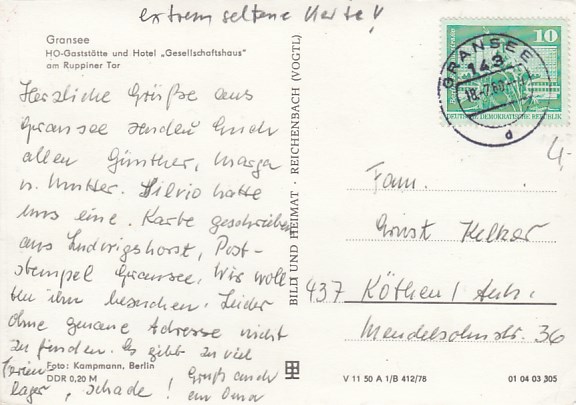 extrem seltene Karte!
Gransee
HO-Gaststätte und Hotel „Gesellschaftshaus"
am Ruppiner Tor
Herzliche Grüße aus
Gransee senden Euch
allen Günther, Marga
u. Mutter. Silvio hatte
uns eine Karte geschrieben
aus Ludwigshorst, Post-
stempel Gransee. Wir woll-
ten ihn besuchen. Leider
ohne genaue Adresse nicht
zu finden. Es gibt zu viel
Ferien
lager, schade! Gruß auch
an Oma
Foto: Kampmann, Berlin
DDR 0,20 M
BILD UND HEIMAT · REICHENBACH (VOGTL)
GRANSEE
143
d
10
DEUTSCHE DEMOKRATISCHE REPUBLIK
4,-
Fam.
Ernst Kelker
437 Köthen / Anh.
Mendelsohnstr. 36
V 11 50 A 1/B 412/78
01 04 03 305